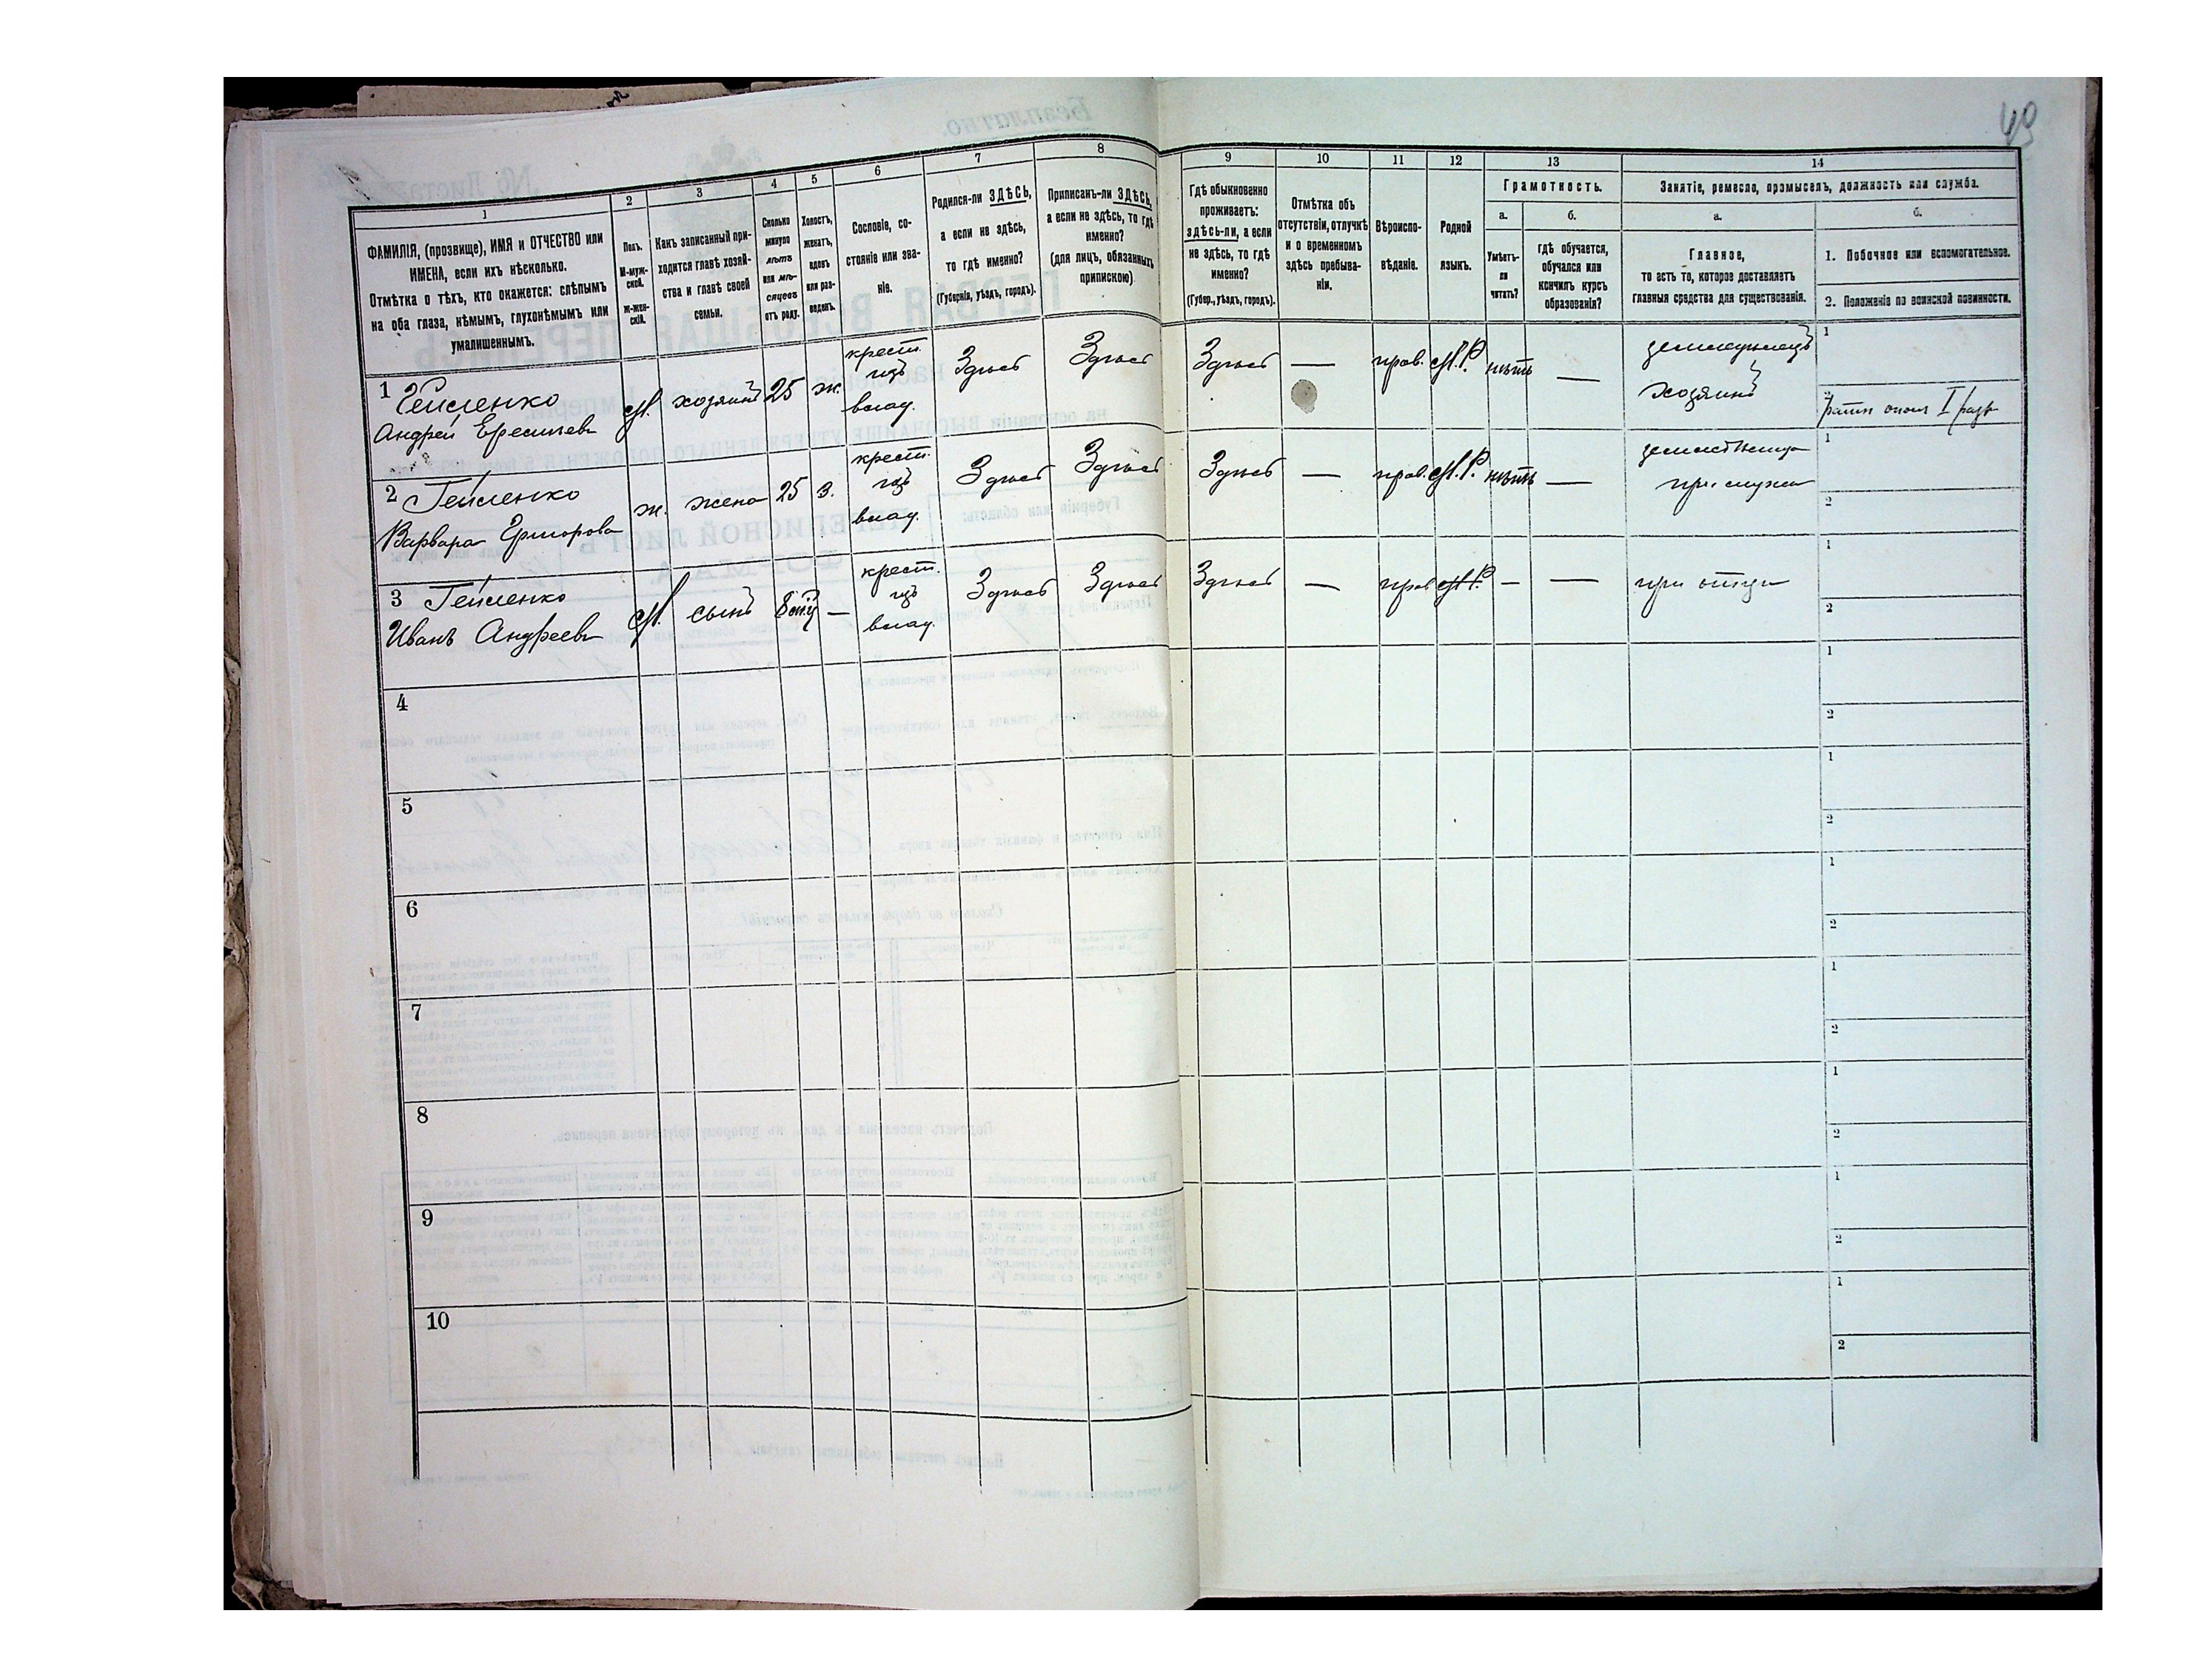 49
1
2
3
4
5
6
7
8
9
10
11
12
13
14
ФАМИЛІЯ, (прозвище), ИМЯ и ОТЧЕСТВО или
ИМЕНА, если ихъ нѣсколько.
Отмѣтка о тѣхъ, кто окажется: слѣпымъ
на оба глаза, нѣмымъ, глухонѣмымъ или
умалишеннымъ.
Полъ.
М-муж-
ской.
Ж-жен-
скій.
Какъ записанный при-
ходится главѣ хозяй-
ства и главѣ своей
семьи.
Сколько
минуло
лѣтъ
или мѣ-
сяцевъ
отъ роду.
Холостъ,
женатъ,
вдовъ
или раз-
веденъ.
Сословіе, со-
стояніе или зва-
ніе.
Родился-ли ЗДѢСЬ,
а если не здѣсь,
то гдѣ именно?
(Губернія, уѣздъ, городъ).
Приписанъ-ли ЗДѢСЬ,
а если не здѣсь, то гдѣ
именно?
(для лицъ, обязанныхъ
припискою)
Гдѣ обыкновенно
проживаетъ:
здѣсь-ли, а если
не здѣсь, то гдѣ
именно?
(Губер., уѣздъ, городъ).
Отмѣтка объ
отсутствіи, отлучкѣ
и о временномъ
здѣсь пребыва-
ніи.
Вѣроиспо-
вѣданіе.
Родной
языкъ.
Грамотность.
а.
б.
Умѣетъ-
ли
читать?
гдѣ обучается,
обучался или
кончилъ курсъ
образованія?
Занятіе, ремесло, промыселъ, должность или служба.
а.
б.
Главное,
то есть то, которое доставляетъ
главныя средства для существованія.
1. Побочное или вспомогательное.
2. Положеніе по воинской повинности.
1
Андрей
М. хозяинъ 25 ж.
крест.
изъ
влад.
Здѣсь Здѣсь Здѣсь — прав. М.Р. нѣтъ —
земледѣлецъ
хозяинъ
1
2
ратн. опол. I разр.
2
Варвара
ж. жена 25 з.
крест.
изъ
влад.
Здѣсь Здѣсь Здѣсь — прав. М.Р. нѣтъ —
при мужѣ
1
2
3
Иванъ Андреевъ
М. сынъ —
крест.
изъ
влад.
Здѣсь Здѣсь Здѣсь — прав М.Р. — —
при отцѣ
1
2
4
1
2
5
1
2
6
1
2
7
1
2
8
1
2
9
1
2
10
1
2